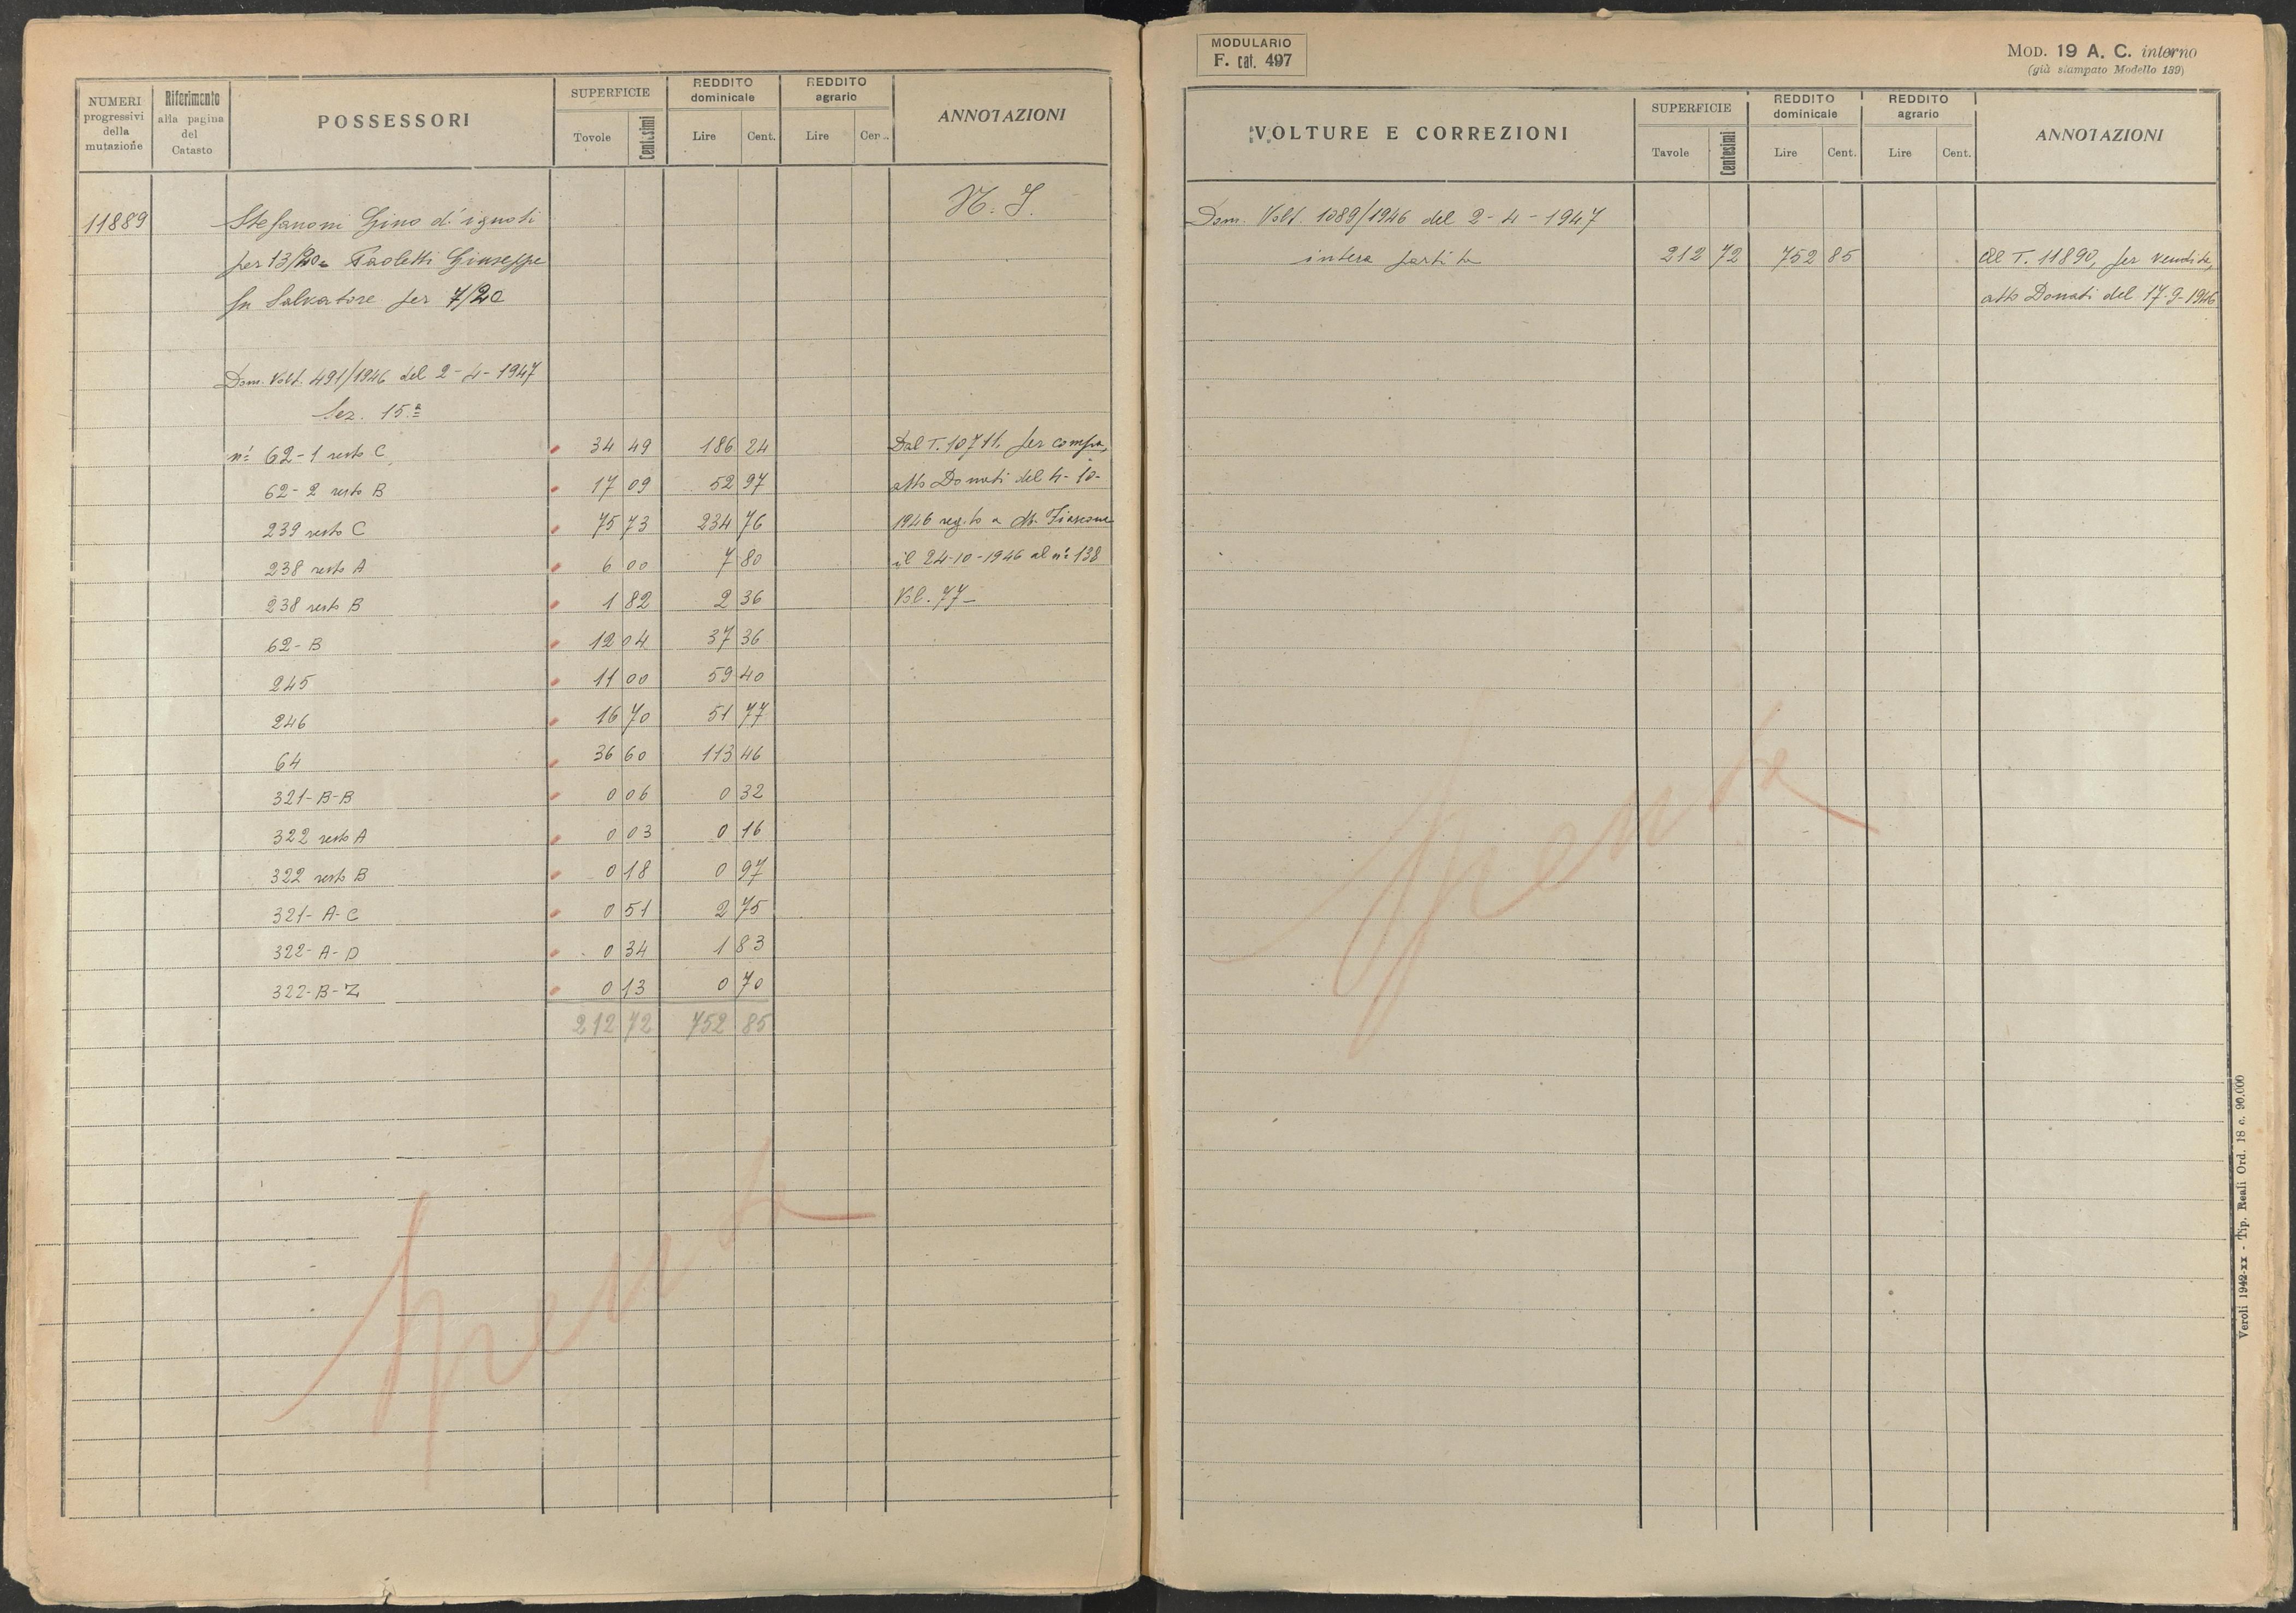 NUMERI progressivi della mutazione
Riferimento alla pagina del Catasto
POSSESSORI
SUPERFICIE
Tovole
Centesimi
REDDITO dominicale
Lire
Cent.
REDDITO agrario
Lire
Cer..
ANNOTAZIONI
N. I.
11889
Stefanoni Gino d'ignoti
per 13/20 e Paoletti Giuseppe
fu Salvatore per 7/20
Dom. Volt. 491/1946 del 2-4-1947
Sez. 15ª
n: 62-1 resto C 34 49 186 24 Dal T. 10711, per compra,
62-2 resto B 17 09 52 97 atto Donati del 4-10-
239 resto C 75 73 234 76 1946 reg.to a M. Fiascone
238 resto A 6 00 7 80 il 24-10-1946 al n: 138
238 resto B 1 82 2 36 Vol. 77-
62-B 12 04 37 36
245 11 00 59 40
246 16 70 51 77
64 36 60 113 46
321-B-B 0 06 0 32
322 resto A 0 03 0 16
322 resto B 0 18 0 97
321-A-C 0 51 2 75
322-A-D 0 34 1 83
322-B-Z 0 13 0 70
212 72 752 85
Spenta
MODULARIO
F. cat. 497
MOD. 19 A. C. interno
(già stampato Modello 189)
VOLTURE E CORREZIONI
SUPERFICIE
Tavole
Centesimi
REDDITO dominicale
Lire
Cent.
REDDITO agrario
Lire
Cent.
ANNOTAZIONI
Dom. Volt. 1089/1946 del 2-4-1947
intera partita 212 72 752 85 Al T. 11890, per vendita,
atto Donati del 17-9-1946
Spenta
Veroli 1942-XX - Tip. Reali Ord. 18 c. 90.000